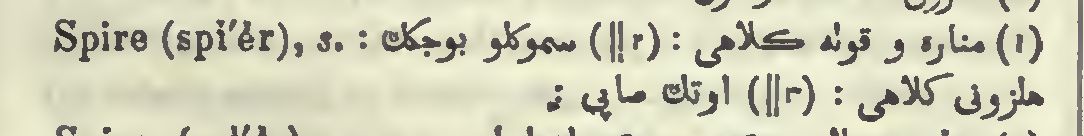 Spire (spī′ėr), s. (۱) مناره و قوله كلاهى : (‖۲) سموكلو بوجكك :
هلزونى كلاهى : (‖۳) اوتك صاپي :